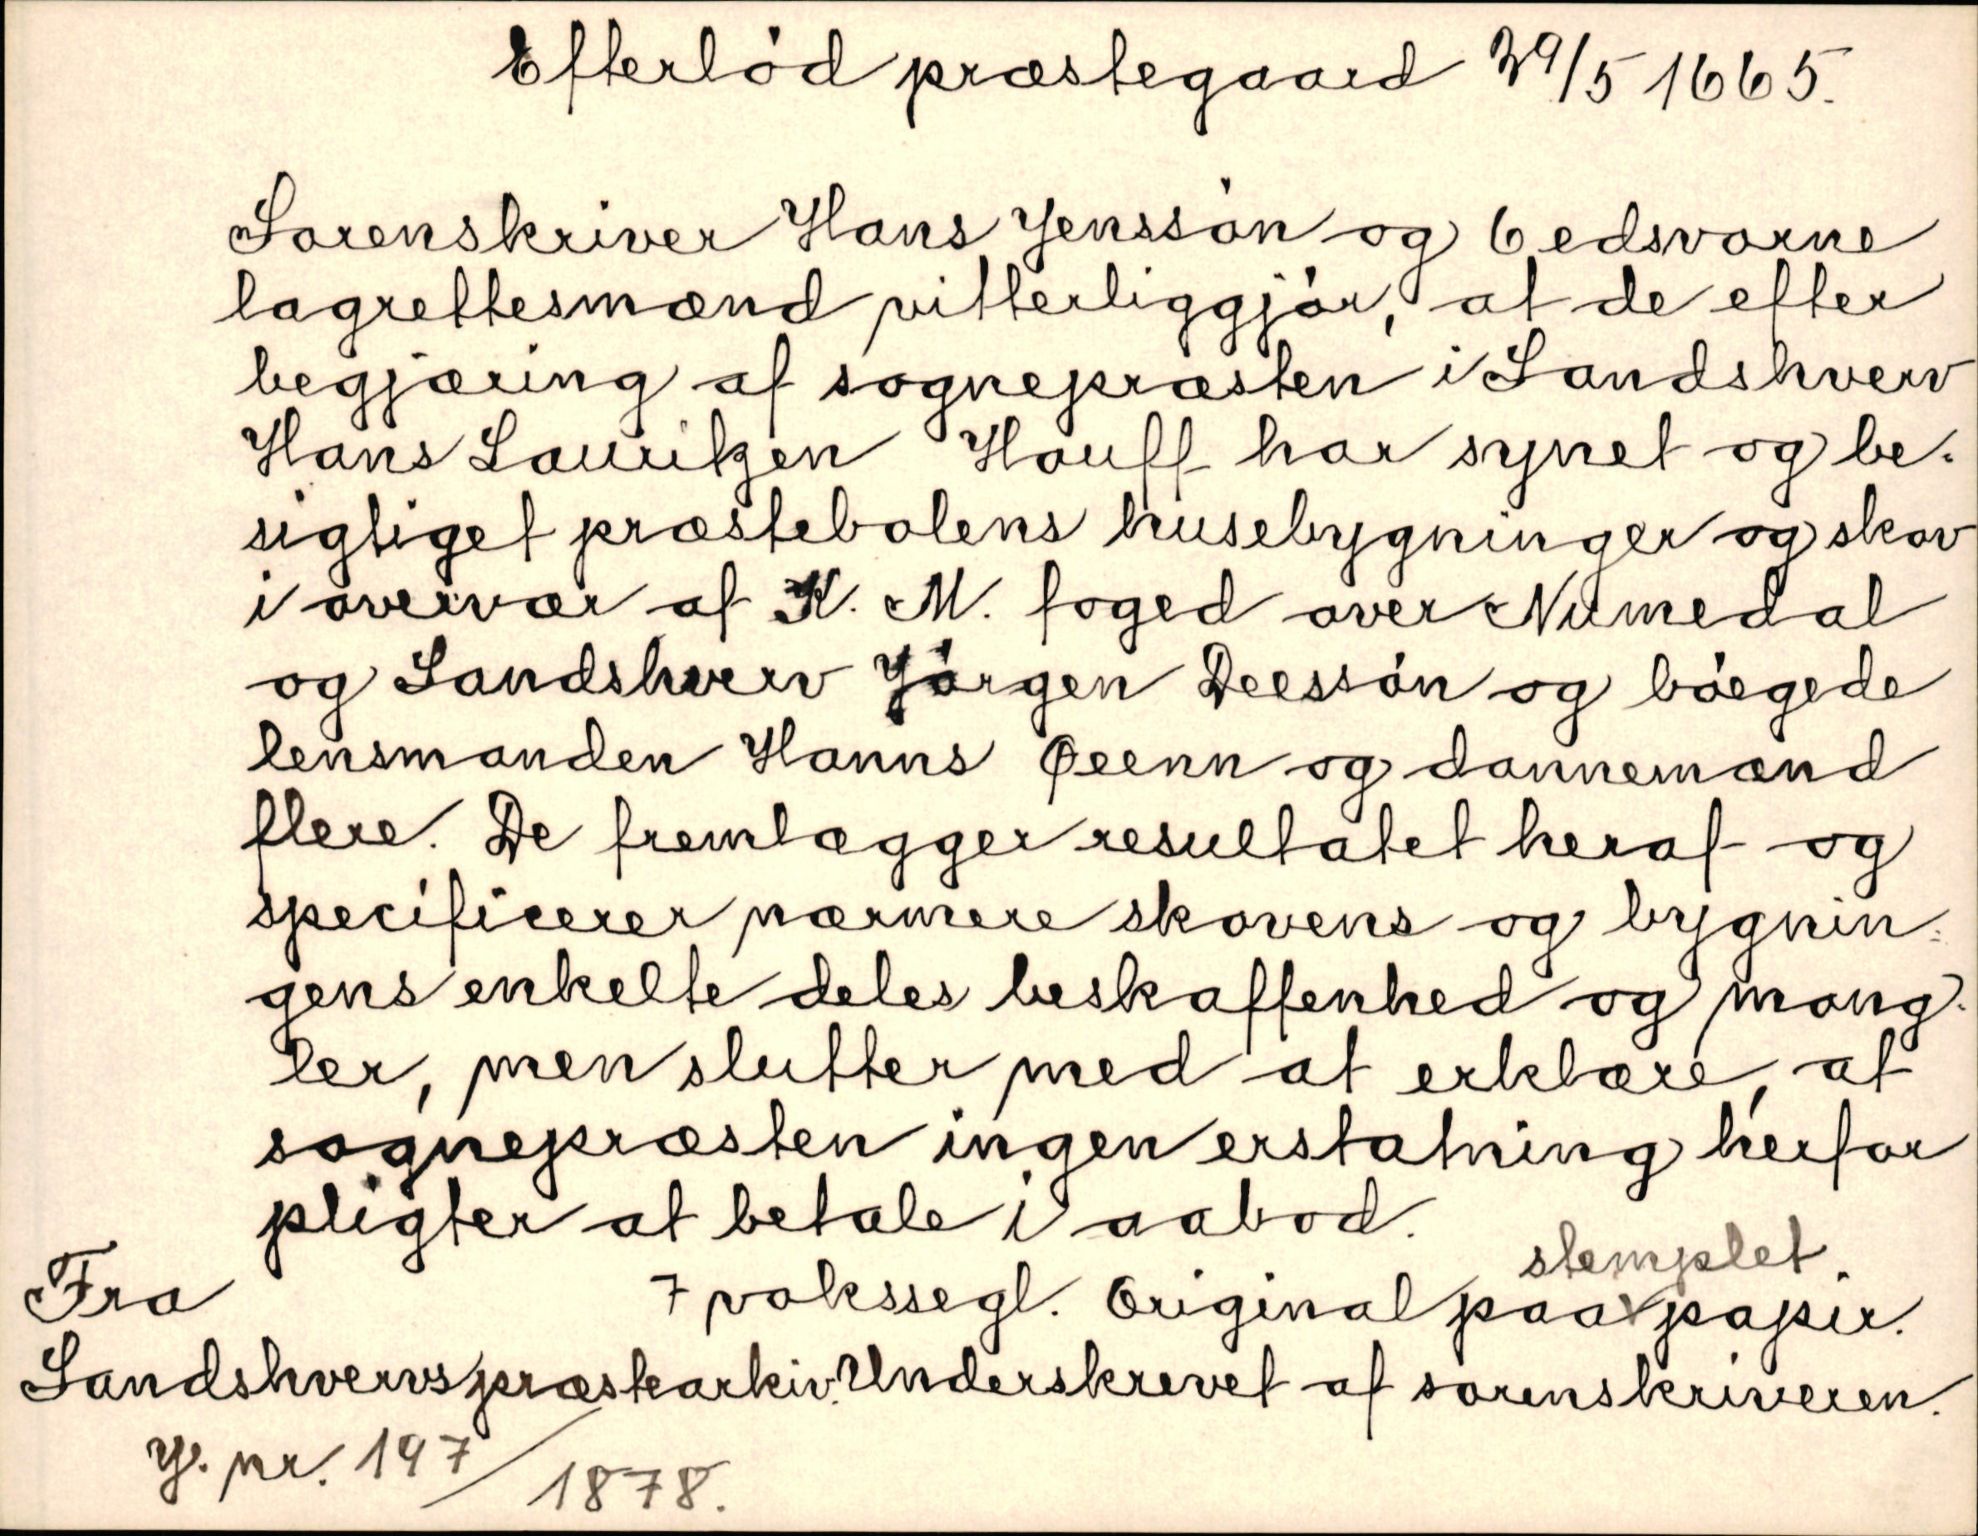 Efterlöd præstegaard 29/5 1665.
Sorenskriver Hans Jenssön og 6 edsvorne
lagrettesmænd vitterliggjör, at de efter
begjæring af sognepræsten i Sandshverv
Hans Lauritzen Houff har synet og be-
sigtiget præstebolens husebygninger og skov
i overvær af K. M. foged over Numedal
og Sandshverv Jörgen Deessön og böegede
lensmanden Hanns Øeenn og dannemænd
flere. De fremlægger resultatet heraf og
specificerer nærmere skovens og bygnin-
gens enkelte deles beskaffenhed og mang-
ler, men slutter med at erklære, at
sognepræsten ingen erstatning herfor
pligter at betale i aabod.
7 vokssegl. Original paa stemplet papir.
Fra
Sandshvervs præstearkiv. Underskrevet af sorenskriveren.
J. nr. 197/1878.